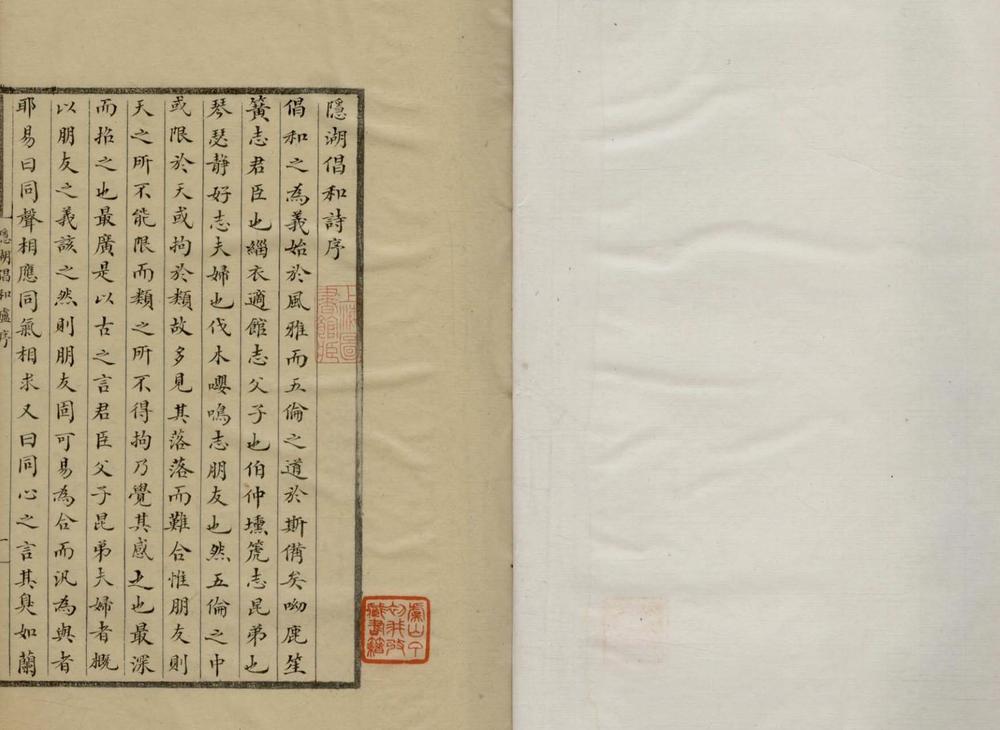 隱湖倡和詩序
倡和之為義始於風雅而五倫之道於斯備矣呦鹿笙
簧志君臣也緇衣適館志父子也伯仲壎箎志昆弟也
琴瑟靜好志夫婦也伐木嚶鳴志朋友也然五倫之中
或限於天或拘於類故多見其落落而難合惟朋友則
天之所不能限而類之所不得拘乃覺其感之也最深
而招之也最廣是以古之言君臣父子昆弟夫婦者概
以朋友之義該之然則朋友固可易為合而汎為與者
耶易曰同聲相應同氣相求又曰同心之言其臭如蘭
隱湖倡和 序
一
上海圖
書館藏
虞山丁
初我攷
藏書籍